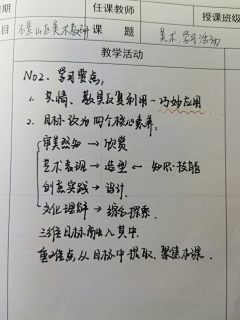 任课教师
授课班级
目
课 题
美术 学习活动
教学活动
No2. 学习要点:
1. 共情、教具反复利用-巧妙应用
2. 目标改为四个核心素养:
审美感知 → 欣赏
艺术表现 → 造型 ← 知识·技能
创意实践 → 设计
文化理解 → 综合探索
三维目标融入其中.
重难点从目标中提取、聚焦本课.